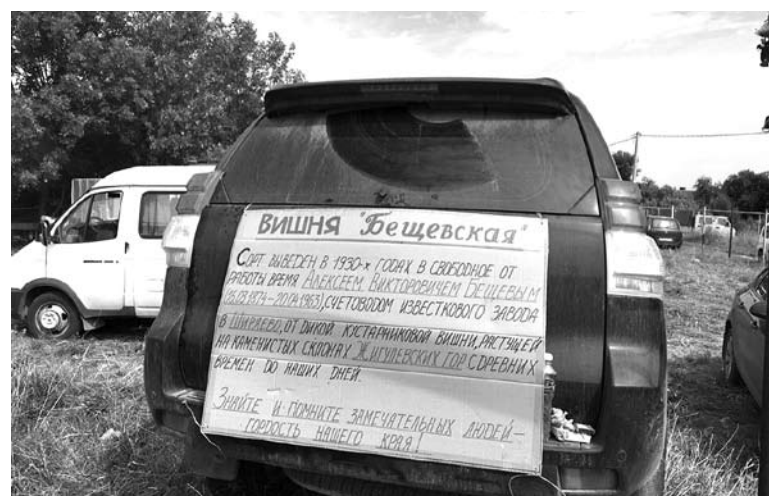 ВИШНЯ "Бещевская"
СОРТ ВЫВЕДЕН В 1930-х ГОДАХ В СВОБОДНОЕ ОТ
РАБОТЫ ВРЕМЯ АЛЕКСЕЕМ ВИКТОРОВИЧЕМ БЕЩЕВЫМ
(16.03.1874–20.04.1963), СЧЕТОВОДОМ ИЗВЕСТКОВОГО ЗАВОДА
В ШИРЯЕВО, ОТ ДИКОЙ КУСТАРНИКОВОЙ ВИШНИ, РАСТУЩЕЙ
НА КАМЕНИСТЫХ СКЛОНАХ ЖИГУЛЕВСКИХ ГОР С ДРЕВНИХ
ВРЕМЕН ДО НАШИХ ДНЕЙ.
ЗНАЙТЕ И ПОМНИТЕ ЗАМЕЧАТЕЛЬНЫХ ЛЮДЕЙ –
ГОРДОСТЬ НАШЕГО КРАЯ!